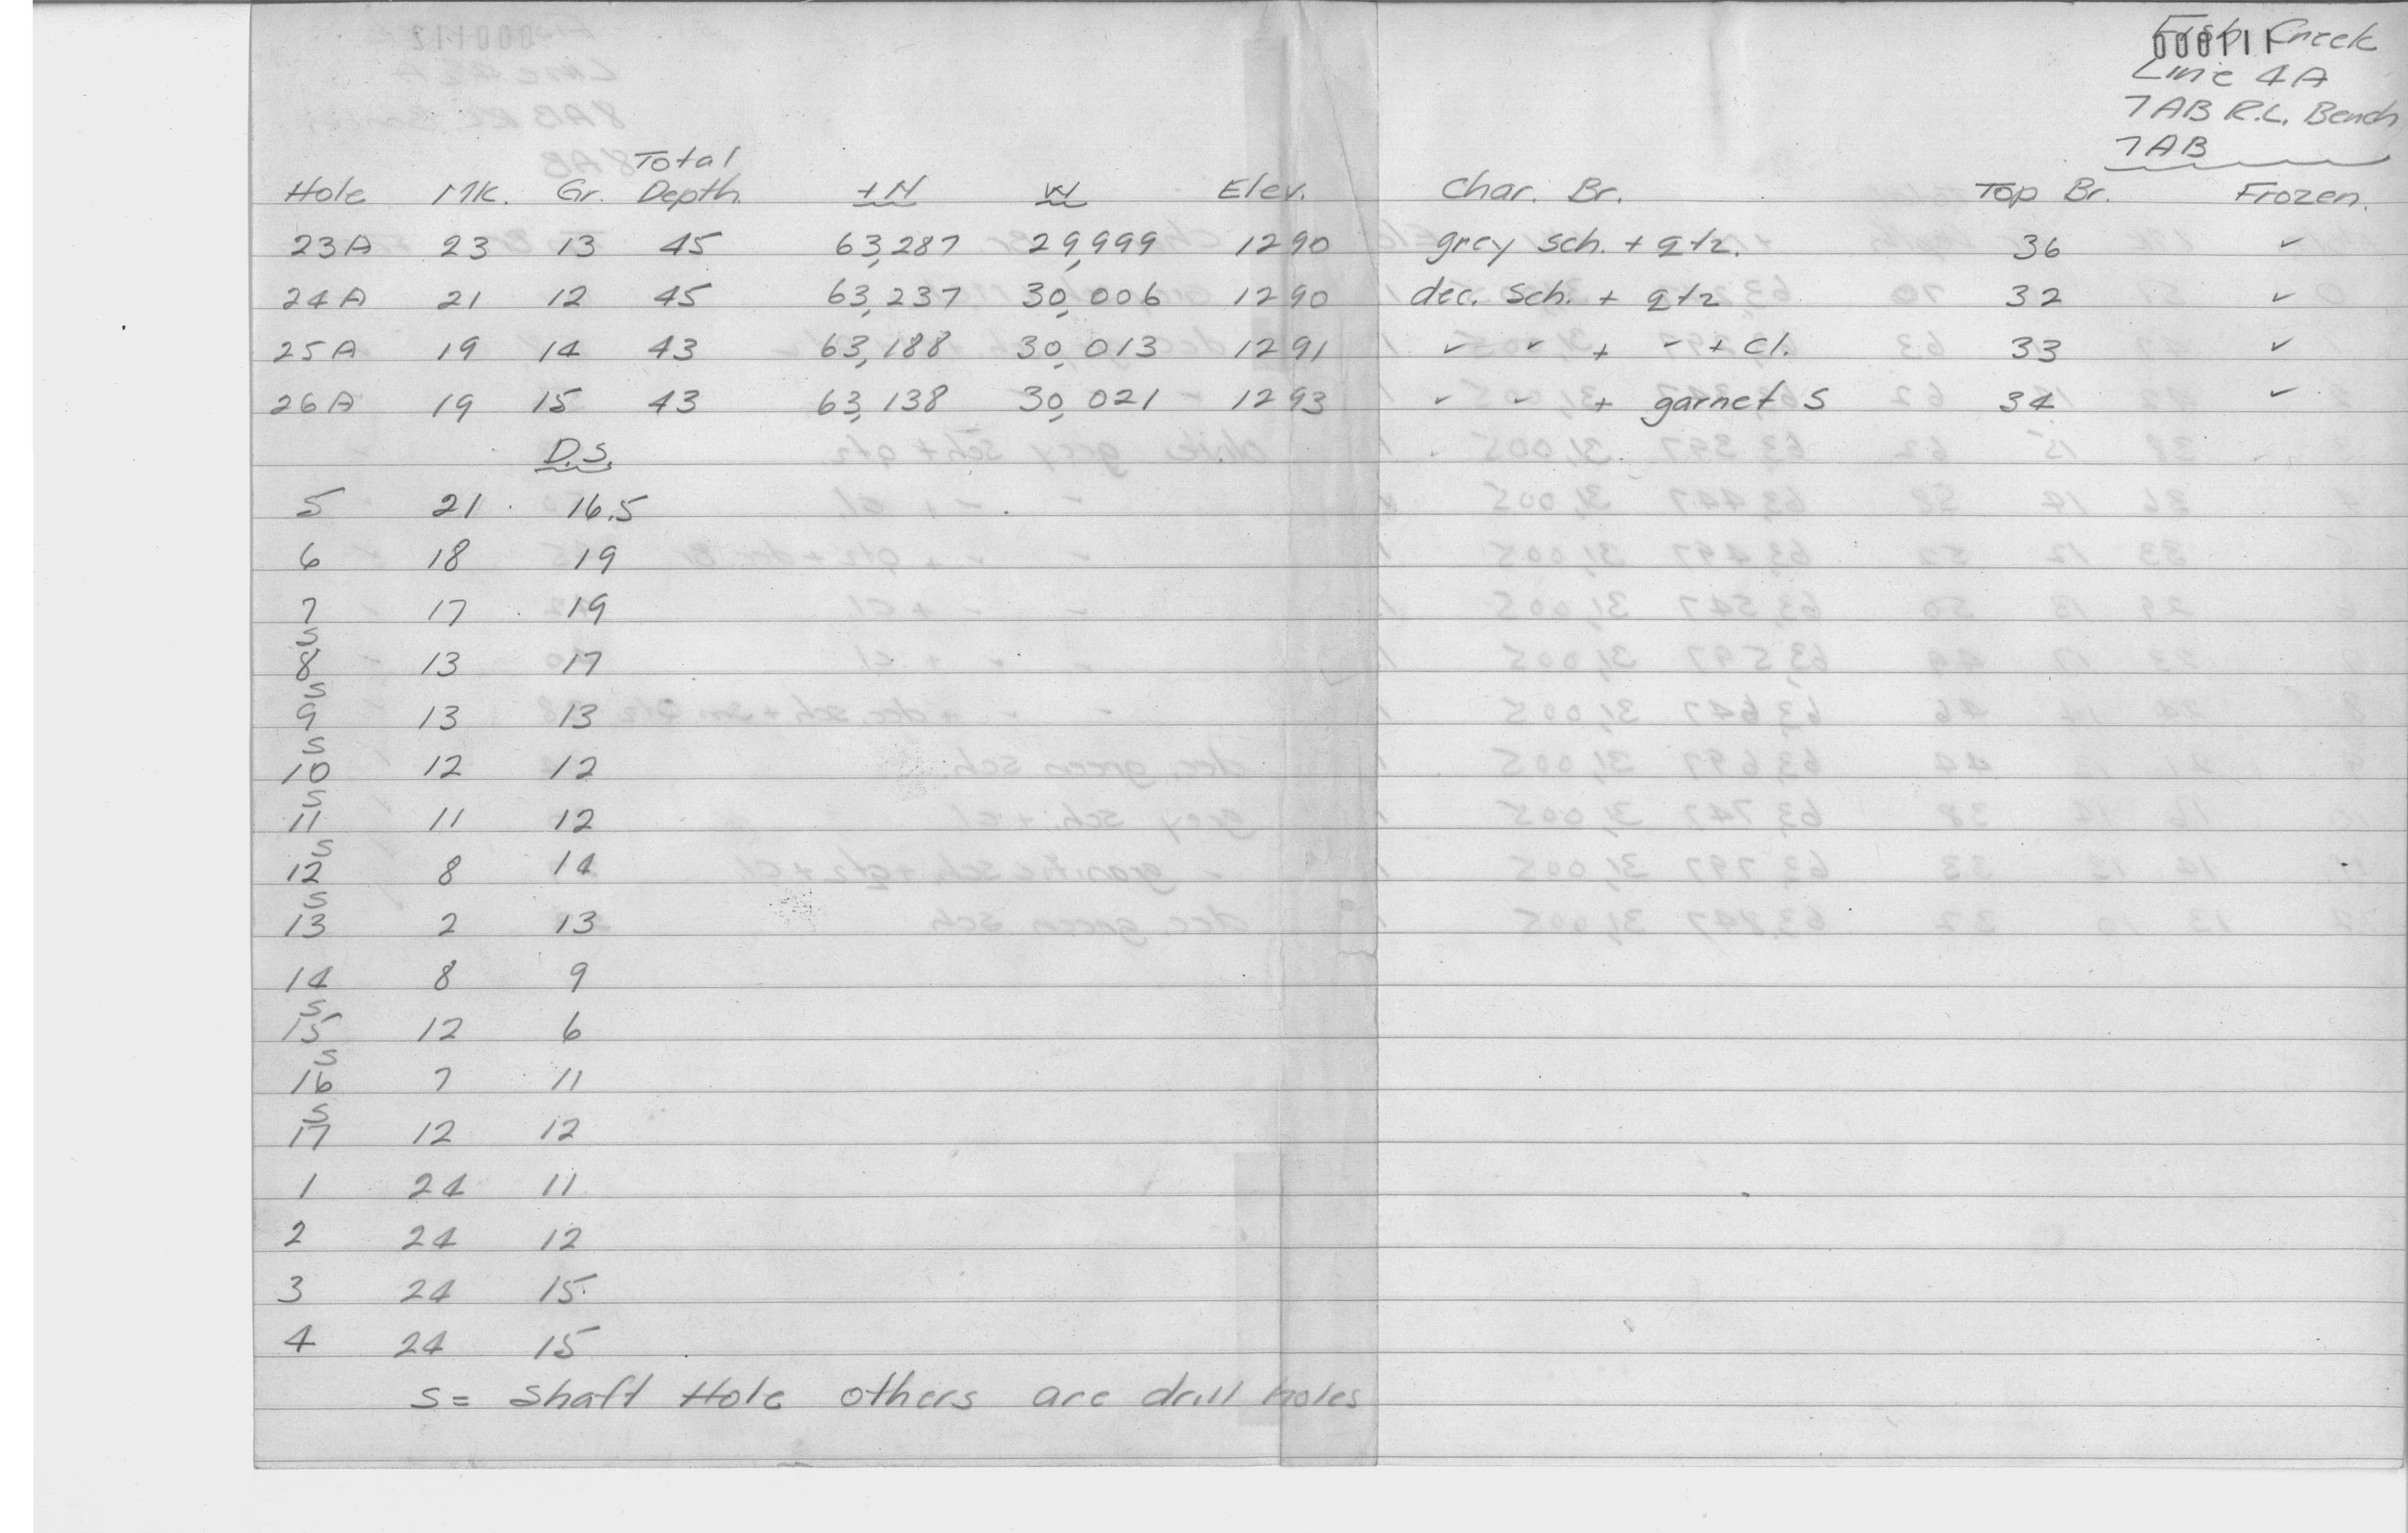 000111
Fish Creek
Line 4A
7AB R.L. Bench
7AB
Total
Hole Mk. Gr. Depth. +N W Elev. Char. Br. Top Br. Frozen.
23A 23 13 45 63,287 29,999 1290 grey sch. + qtz. 36 ✓
24A 21 12 45 63,237 30,006 1290 dec. sch. + qtz 32 ✓
25A 19 14 43 63,188 30,013 1291 ✓ ✓ + ✓ + cl. 33 ✓
26A 19 15 43 63,138 30,021 1293 ✓ ✓ + garnets 34 ✓
D.S.
5 21 16.5
6 18 19
7 17 19
S
8 13 17
S
9 13 13
S
10 12 12
S
11 11 12
S
12 8 14
S
13 2 13
14 8 9
S
15 12 6
S
16 7 11
S
17 12 12
1 24 11
2 24 12
3 24 15
4 24 15
S = Shaft Hole others are drill holes